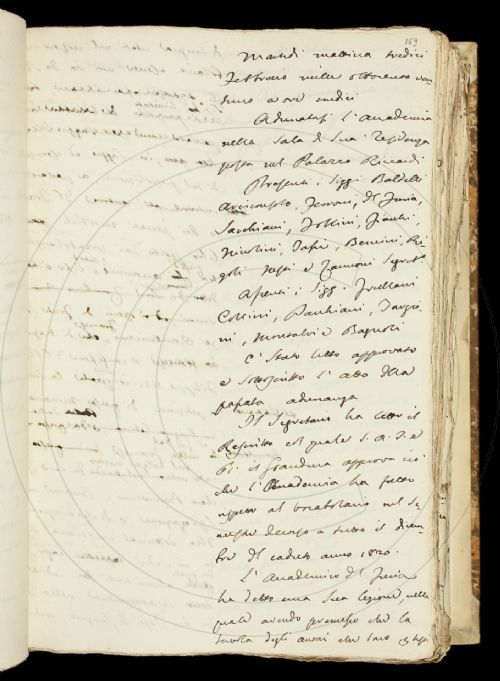 159
Martedì mattina tredici
Febbraio mille ottocento ven
tuno a ore undici
Adunatasi l'Accademia
nella Sala di Sua residenza
posta nel Palazzo Riccardi
Presenti i Sigg. Baldelli
Arciconsolo, Ferroni, Del Furia,
Sarchiani, Follini, Fiacchi,
Niccolini, Bencini, Ri
goli e Zannoni Segret.
Assenti i Sigg.
Collini, Pauchiani, Targio
ni, Montalvi e Bagnoli
È stato letto approvato
e sottoscritto l'atto della
passata adunanza
Il Segretario ha letto il
Rescritto col quale S. A. I. e
R. il Granduca approva ciò
che l'Accademia ha fatto
rispetto al vocabolario nel Se
mestre decorso a tutto il dicem
bre del caduto anno 1820.
L'Accademico Del Furia
ha detto una Sua lezione, nella
quale avendo premesso che la
tavola degli autori che sarà